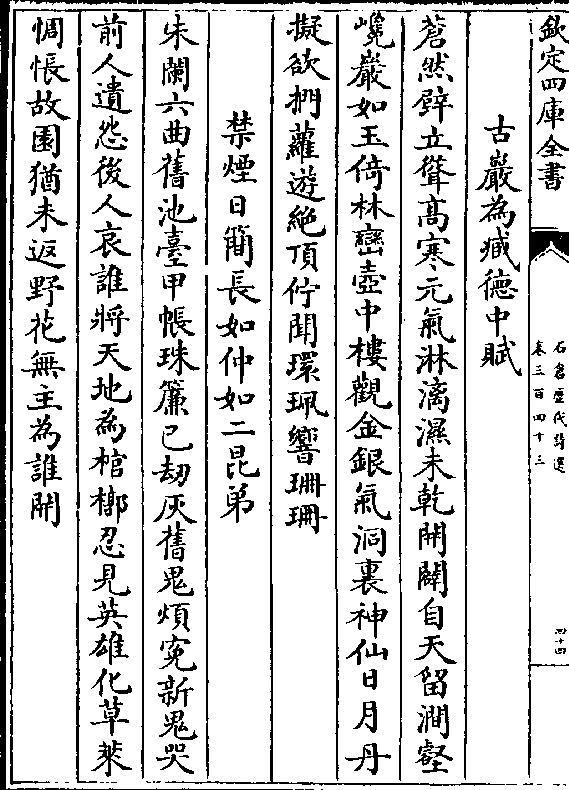 欽定四庫全書
石倉歷代詩選
卷三百四十三
四十四
古巖為臧德中賦
蒼然壁立聳高寒元氣淋漓濕未乾開闢自天留澗壑
巉巖如玉倚林巒壺中樓觀金銀氣洞裏神仙日月丹
擬欲捫蘿遊絶頂佇聞環珮響珊珊
禁煙日簡長如仲如二昆弟
朱闌六曲舊池臺甲帳珠簾已劫灰舊鬼煩寃新鬼哭
前人遺怨後人哀誰將天地為棺槨忍見英雄化草萊
惆悵故園猶未返野花無主為誰開